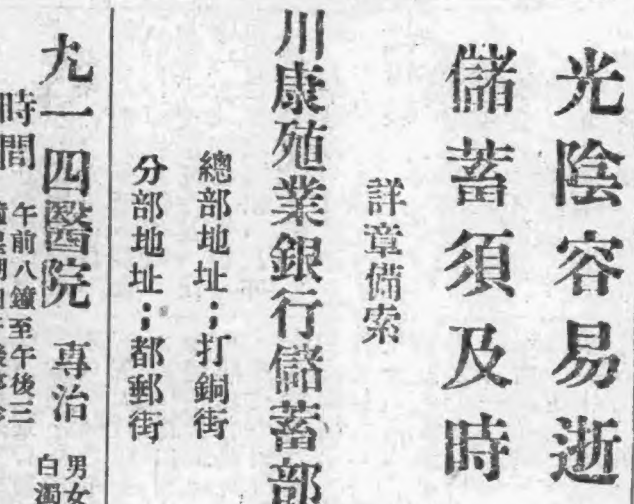 光陰容易逝
儲蓄須及時
詳章備索
川康殖業銀行儲蓄部
總部地址；打銅街
分部地址；都郵街
九一四醫院 專治
男女
白濁
時間
午前八鐘至午後三